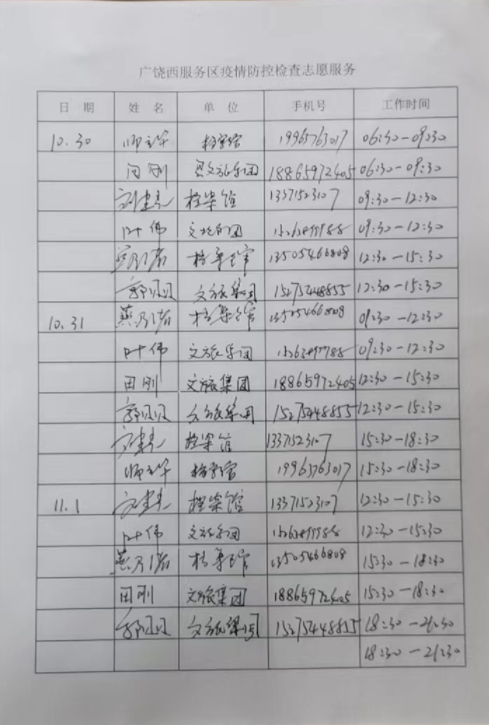 广饶西服务区疫情防控检查志愿服务
日 期 姓 名 单 位 手机号 工作时间
10.30 档案馆 19963763017 06:30-09:30
田刚 文旅集团 18865972405 06:30-09:30
刘建 档案馆 13371523107 09:30-12:30
叶伟 文旅集团 09:30-12:30
档案馆 13505466808 12:30-15:30
郭 文旅集团 15275448855 12:30-15:30
10.31 燕 档案馆 13505466808 09:30-12:30
叶伟 文旅集团 09:30-12:30
田刚 文旅集团 18865972405 12:30-15:30
郭 文旅集团 15275448855 12:30-15:30
刘建 档案馆 13371523107 15:30-18:30
档案馆 19963763017 15:30-18:30
11.1 刘建 档案馆 13371523107 12:30-15:30
叶伟 文旅集团 12:30-15:30
燕 档案馆 13505466808 15:30-18:30
田刚 文旅集团 18865972405 15:30-18:30
郭 文旅集团 15275448855 18:30-21:30
18:30-21:30